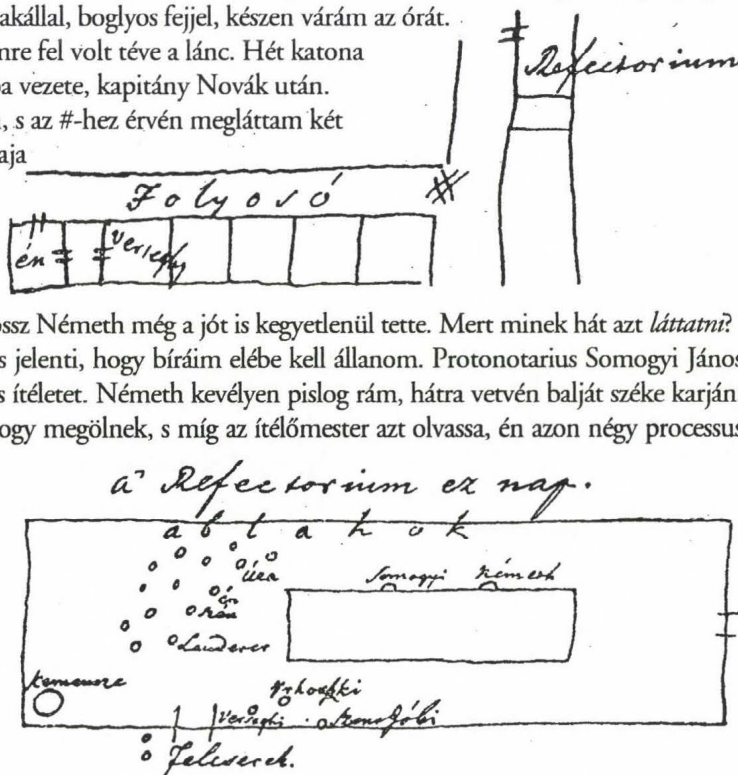 akállal, boglyos fejjel, készen várám az órát.
nre fel volt téve a lánc. Hét katona
a vezete, kapitány Novák után.
, s az #-hez érvén megláttam két
aja
Refectorium
Folyosó
én
Verseghy
ossz Németh még a jót is kegyetlenül tette. Mert minek hát azt láttatni?
s jelenti, hogy bíráim elébe kell állanom. Protonotarius Somogyi János
s ítéletet. Németh kevélyen pislog rám, hátra vetvén balját széke karján
ogy megölnek, s míg az ítélőmester azt olvassa, én azon négy processus
a' Refectorium ez nap.
ablakok
Somogyi Németh
Úza
én
Landerer
Kemence
Verseghi
Felcserek.